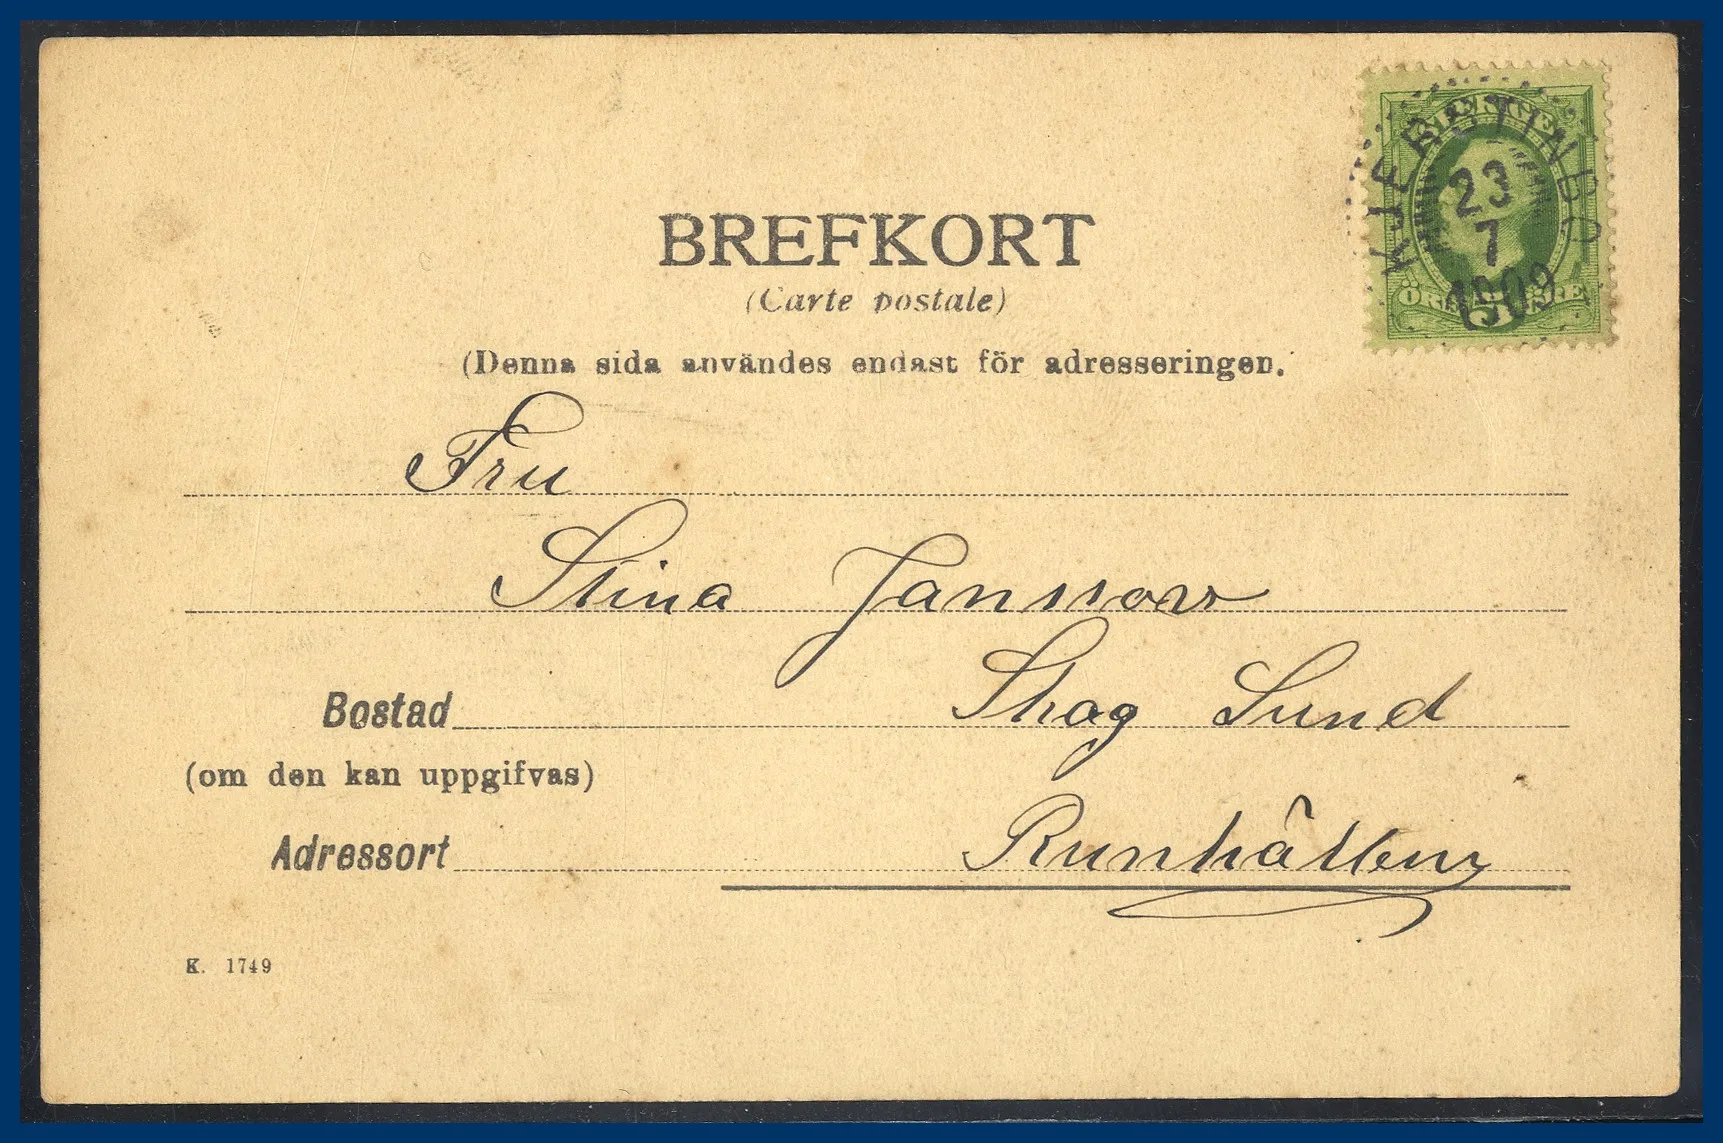 SVERIGE
KJERSTINBO
23
7
1909
5
ÖRE
BREFKORT
(Carte postale)
(Denna sida användes endast för adresseringen.
Fru
Stina Jansson
Bostad Skog Sund
(om den kan uppgifvas)
Adressort Runhällen
K. 1749